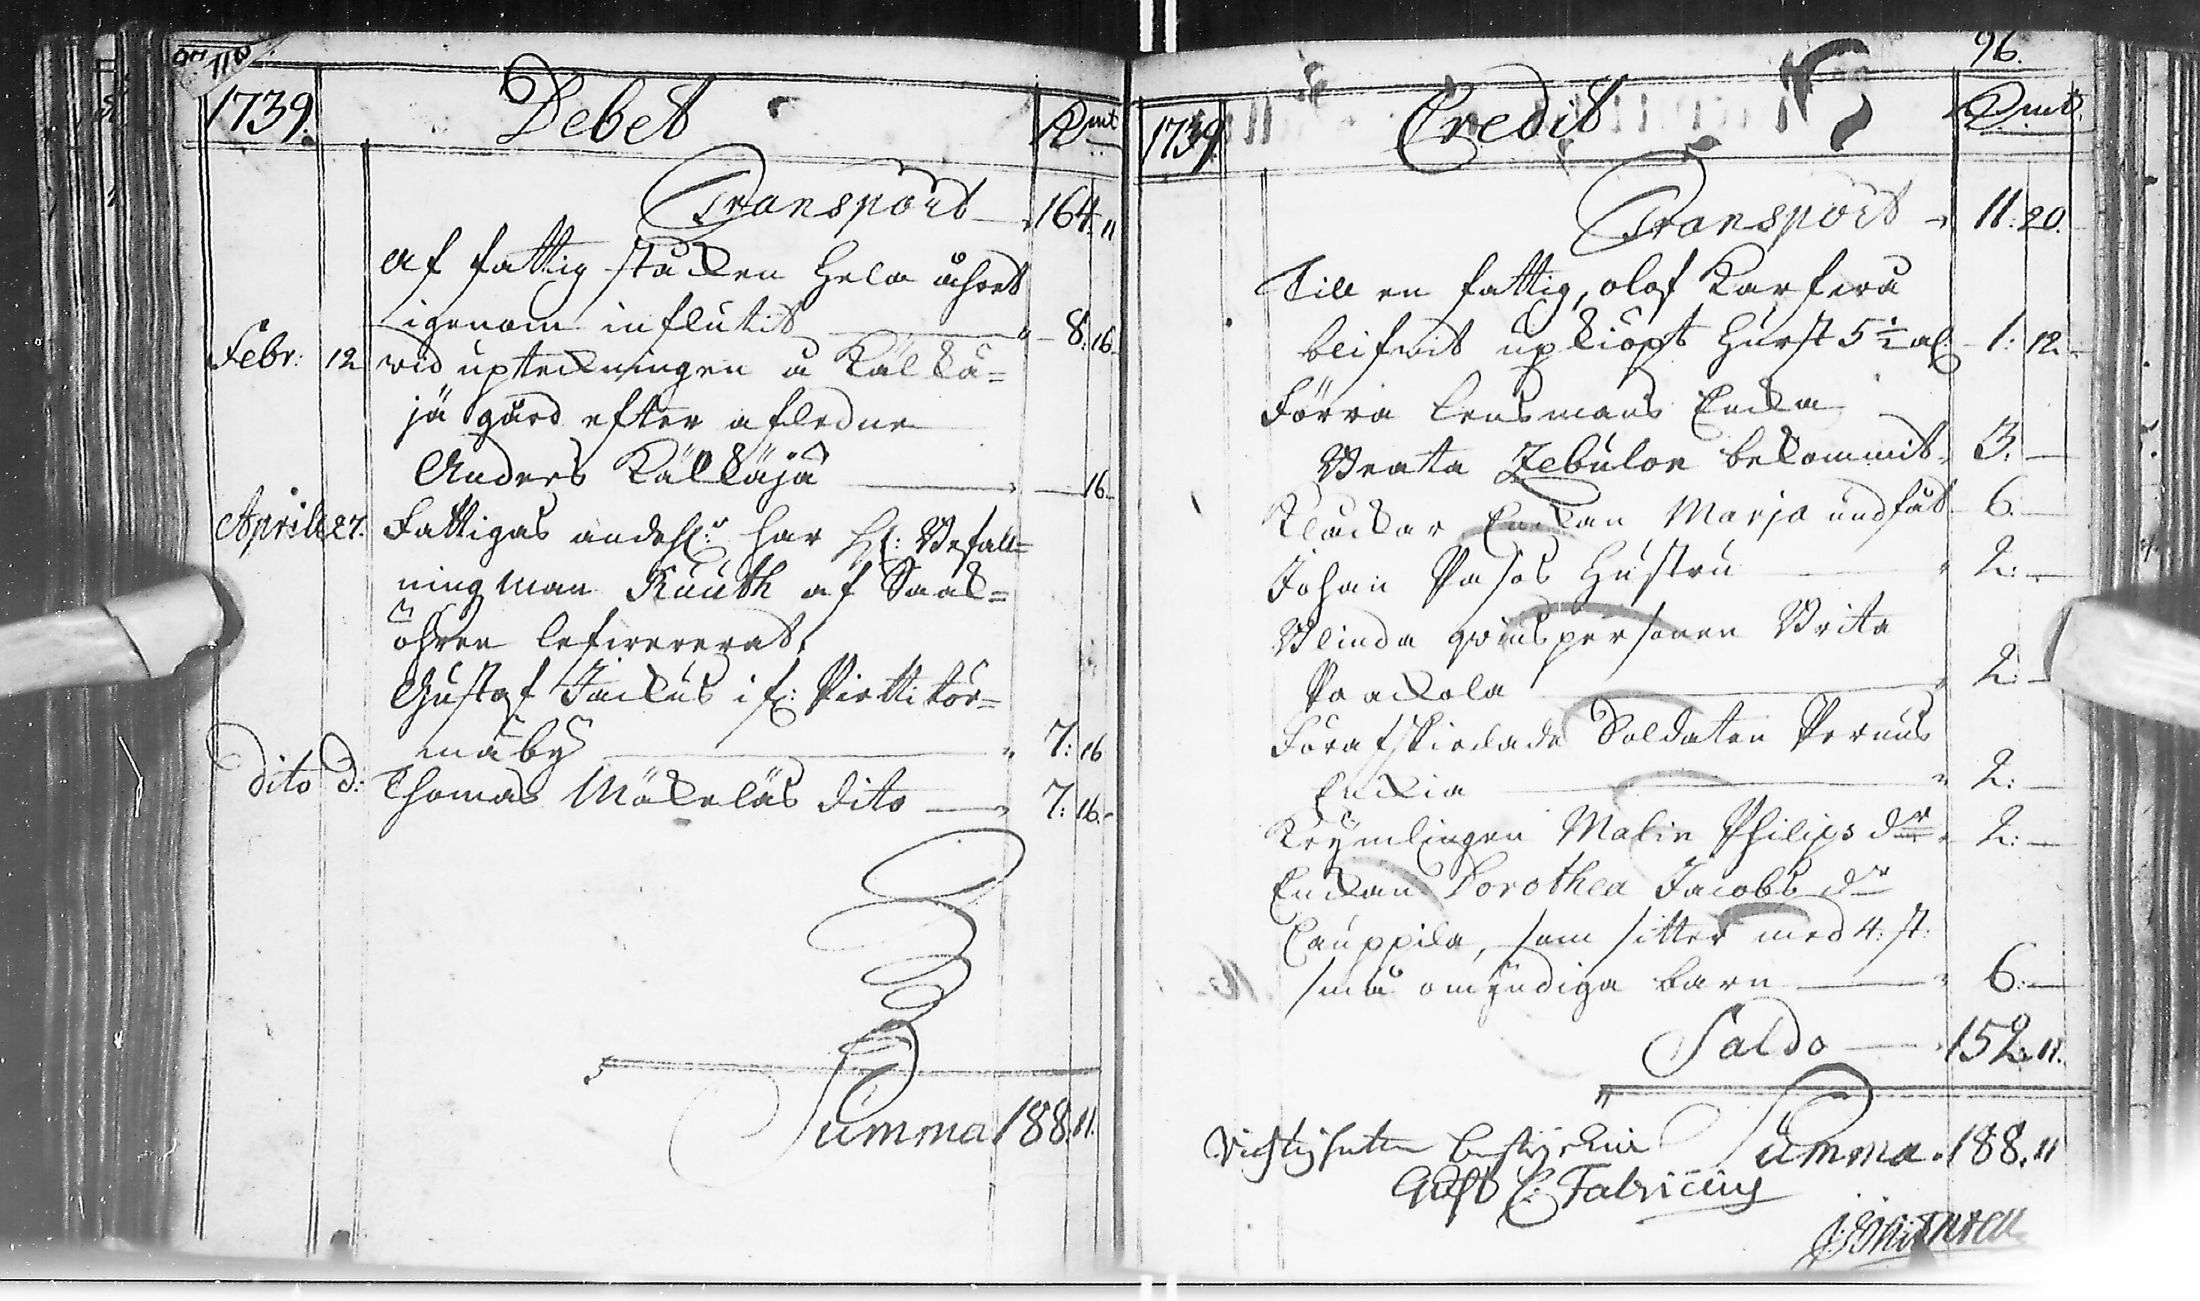 1739. Debet Dmt
Transport 164. 11
Af fattig stäcken hela åhret
igenom influtit 8. 16
Febr: 12 wid upteckningen å Källä=
jä gård efter afledne
Anders Källäjä 16
Aprill 27. Fattigas andehl: har H: Befall=
ning man Knuth af Saak=
öhren lefwererat.
Gustaf Jackus i f: Pirttikör=
mä by 7: 16
dito d: Thomas Mäkeläs dito 7: 16.
Summa 188. 11.
96.
1739 Credit Dmt.
Transport 11: 20.
Till en fattig, olof Karferu
blifwit upkiöpt hurst 5 1/2 al: 1: 12
Förra Lensmans Encka
Beata Zebulon bekommit 3. —
Klåckar Enckan Marja undfåt 6. —
Johan Pasos Hustru 2: —
Blinda qwinspersonen Brita
Paackola 2: —
Förafskiedade Soldaten Pernus
Enckia 2: —
Krÿmlingen Malin Philips dr 2: —
Enckan Dorothea Jacobs dr
Cauppila, som sitter med 4: st:
små omÿndiga barn 6: —
Saldo 152. 11.
Summa. 188. 11
Richtigheten bestyrkia
Gust C: Fabricius